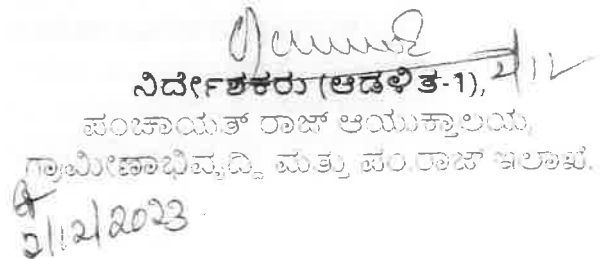 2/12
ನಿರ್ದೇಶಕರು (ಆಡಳಿತ-1),
ಪಂಚಾಯತ್ ರಾಜ್ ಆಯುಕ್ತಾಲಯ,
ಗ್ರಾಮೀಣಾಭಿವೃದ್ಧಿ ಮತ್ತು ಪಂ.ರಾಜ್ ಇಲಾಖೆ.
2/12/2023